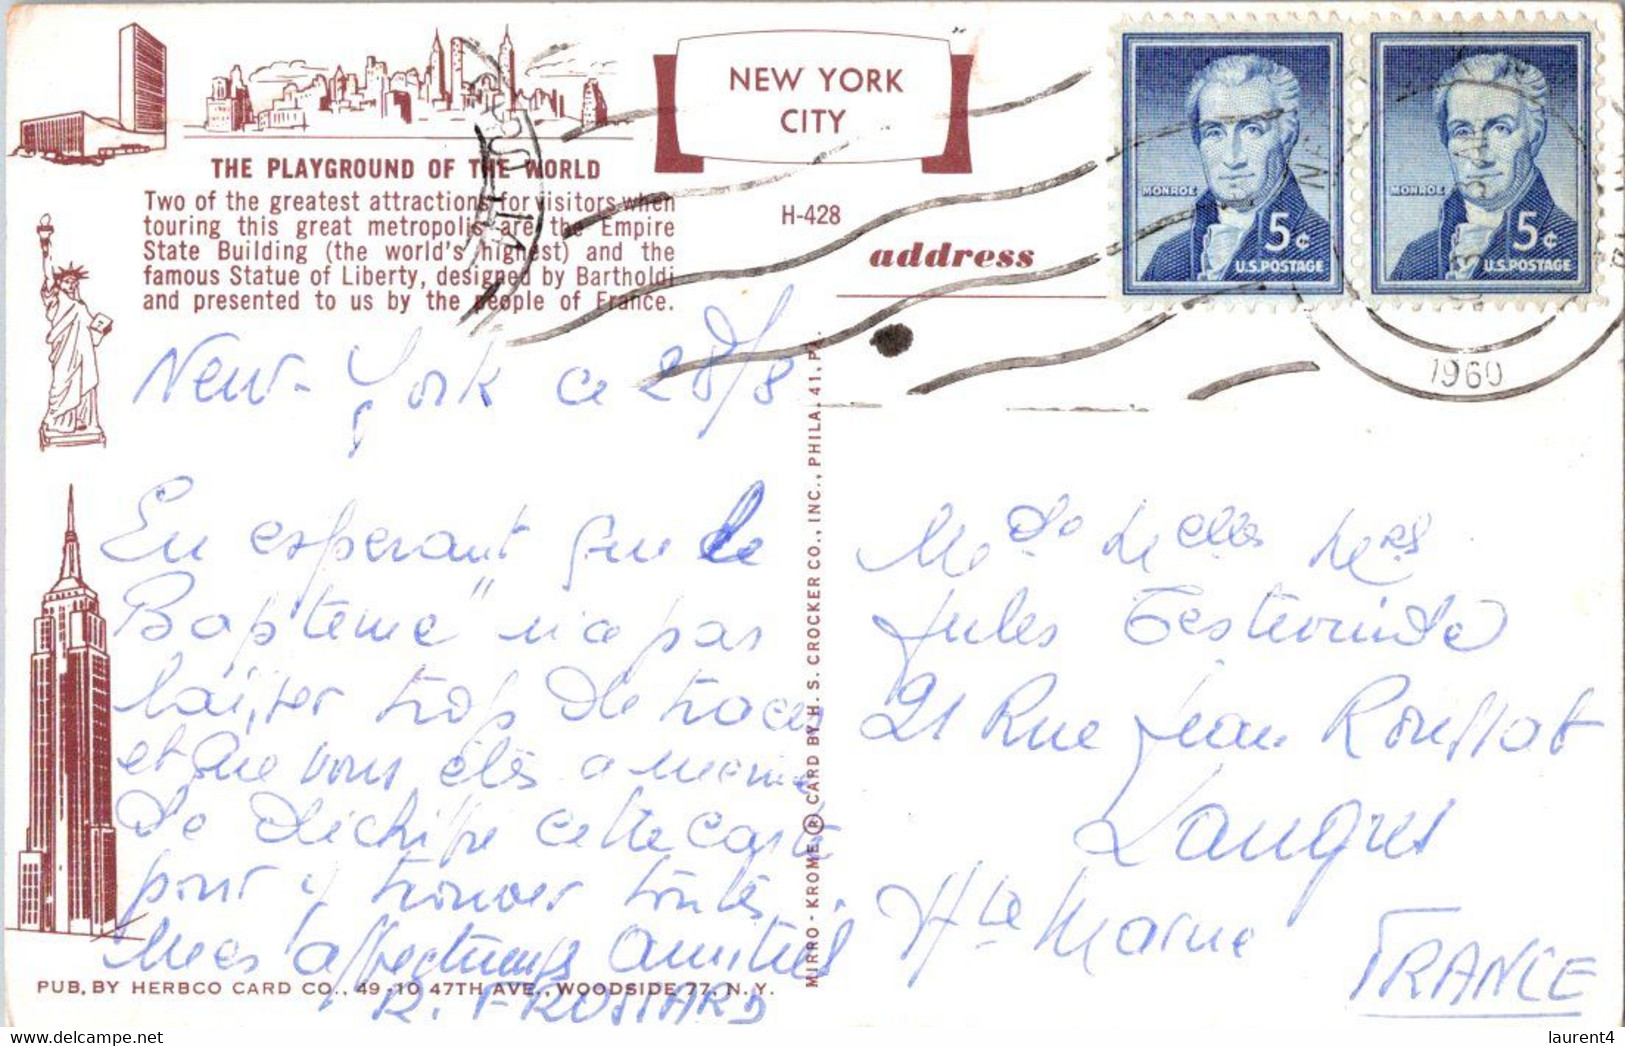 THE PLAYGROUND OF THE WORLD
Two of the greatest attractions for visitors when
touring this great metropolis are the Empire
State Building (the world's highest) and the
famous Statue of Liberty, designed by Bartholdi
and presented to us by the people of France.
NEW YORK
CITY
H-428
address
MONROE
5¢
U.S. POSTAGE
MONROE
5¢
U.S. POSTAGE
1960
New-York ce 28/8
En esperant que le
Bapteme" n'a pas
laisser trop de traces
et que vous êtes a meme
de déchiffré cette carte
pour y trouver toutes
Mes affectueuses amitiés
R. FROSSARD
MIRRO-KROME ® CARD BY H. S. CROCKER CO., INC., PHILA. 41, PA.
Jules
21 Rue Jean Roussat
Langres
Hte Marne
FRANCE
PUB. BY HERBCO CARD CO., 49-10 47TH AVE., WOODSIDE 77, N.Y.
laurent4